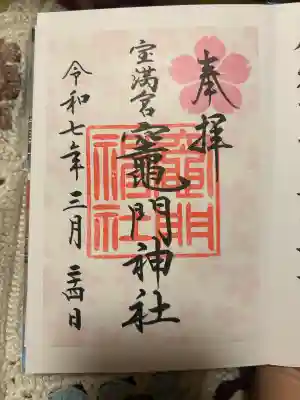 奉拝
宝満宮
竈門神社
令和七年三月二四日
竈門
神社